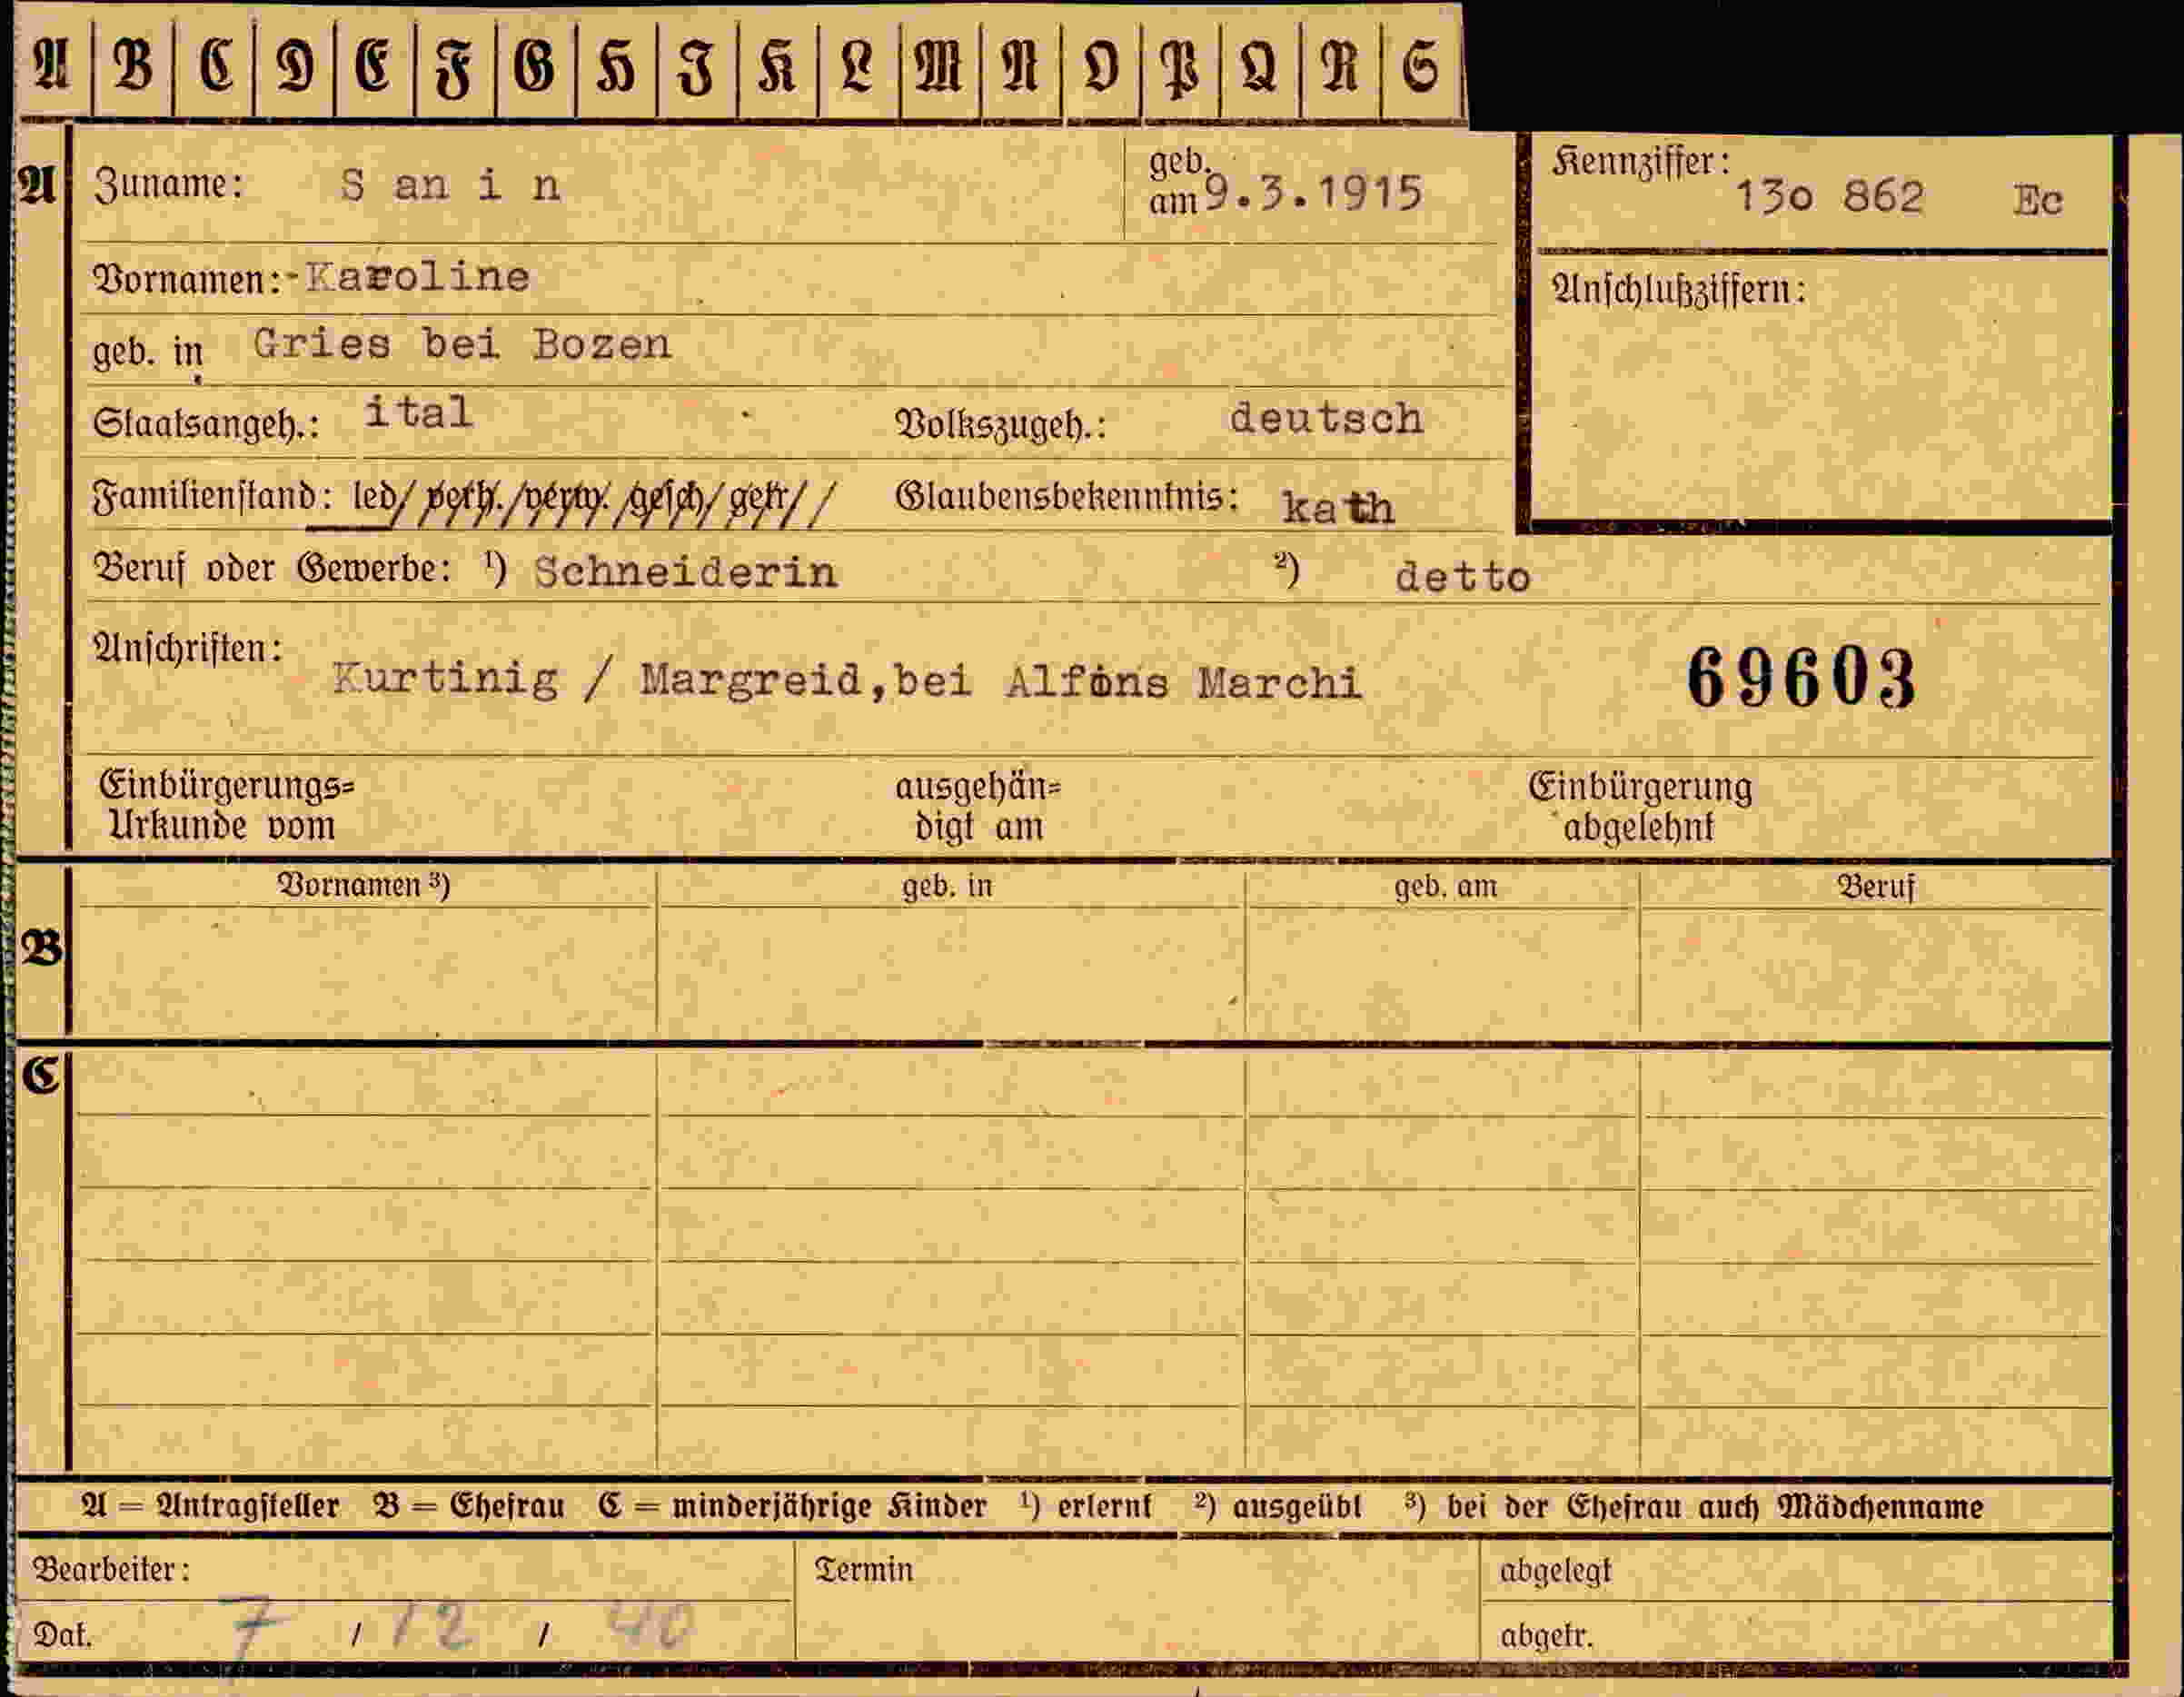 A B C D E F G H I K L M N O P Q R S
A Zuname: S an i n geb. am 9.3.1915 Kennziffer: 13o 862 Ec
Vornamen:-Karoline Anschlußziffern:
geb. in Gries bei Bozen
Staatsangeh.: ital Volkszugeh.: deutsch
Familienstand: led/ verh./verw. /gesch/ getr// Glaubensbekenntnis: kath
Beruf oder Gewerbe: ¹) Schneiderin ²) detto
Anschriften:
Kurtinig / Margreid,bei Alfons Marchi 69603
Einbürgerungs= ausgehän= Einbürgerung
Urkunde vom digt am abgelehnt
Vornamen ³) geb. in geb. am Beruf
B
C
A = Antragsteller B = Ehefrau C = minderjährige Kinder ¹) erlernt ²) ausgeübt ³) bei der Ehefrau auch Mädchenname
Bearbeiter: Termin abgelegt
Dat. 7 / 12 / 40 abgetr.